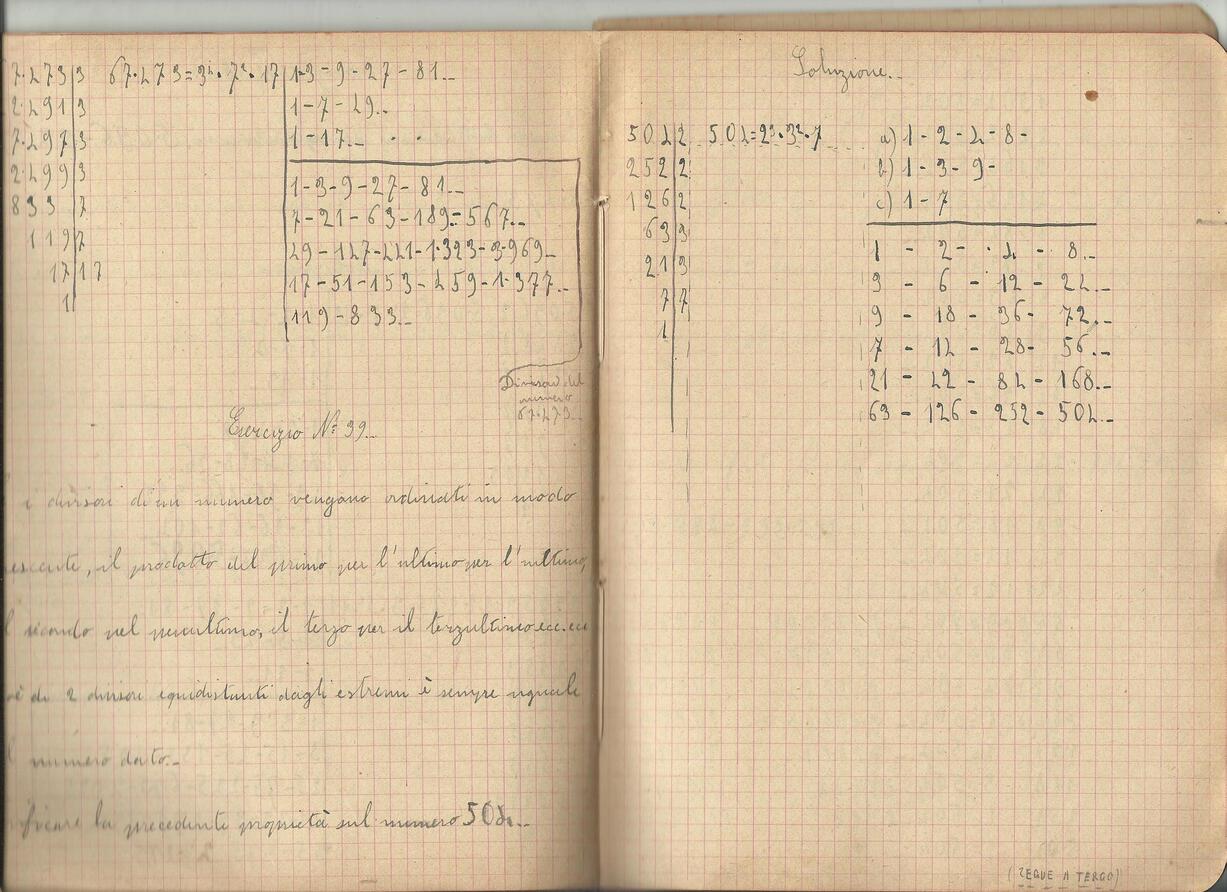 7·473 3 67·473=3⁴·7²·17 1-3-9-27-81..
2·491 3 1-7-49..
7·497 3 1-17..
2·499 3
1-3-9-27-81..
833 7 7-21-63-189-567..
119 7 49-147-441-1·323-3·969..
17 17 17-51-153-459-1·377..
1 119-833..
Divisori del
numero
67·473..
Esercizio Nº 39..
i divisori di un numero vengano ordinati in modo
escente, il prodotto del primo per l'ultimo per l'ultimo,
l secondo pel penultimo, il terzo per il terzultimo ecc. ecc
oè di 2 divisori equidistanti dagli estremi è sempre uguale
l numero dato..
rificare la precedente proprietà sul numero 504..
Soluzione..
504 2 504=2³·3²·7 a) 1-2-4-8-
252 2 b) 1-3-9-
126 2 c) 1-7
63 3
21 3
7 7
1
1 - 2 - 4 - 8..
3 - 6 - 12 - 24..
9 - 18 - 36 - 72..
7 - 14 - 28 - 56..
21 - 42 - 84 - 168..
63 - 126 - 252 - 504..
(SEGUE A TERGO)